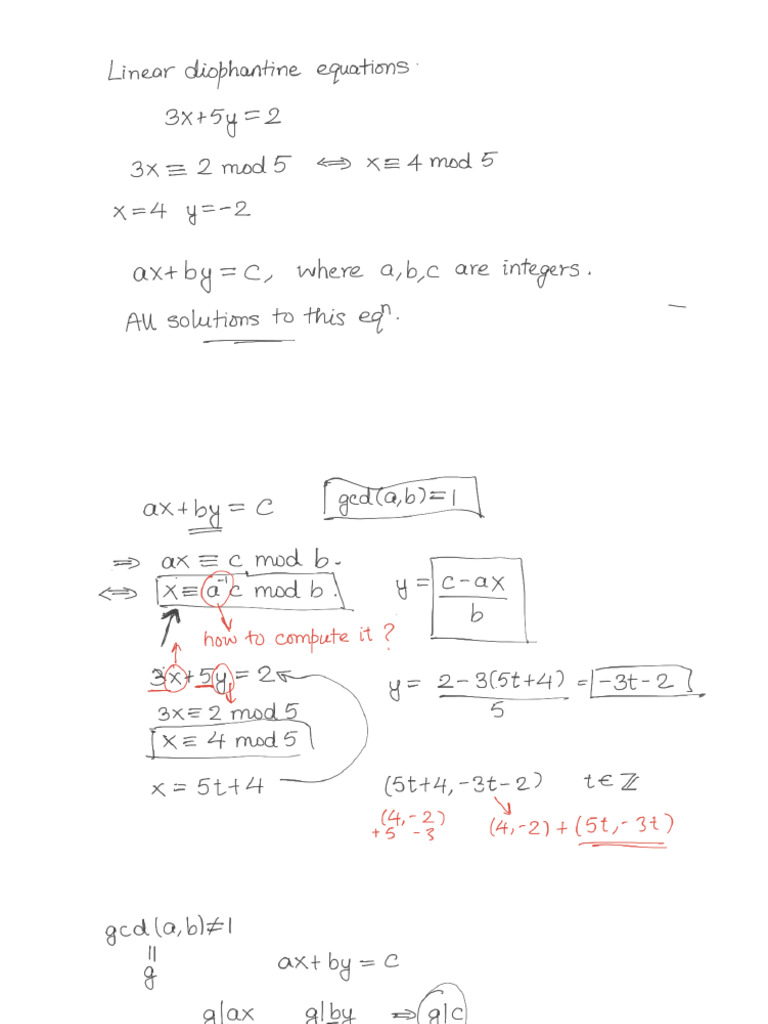 Linear diophantine equations.
3x+5y=2
3x ≡ 2 mod 5 ⟺ x ≡ 4 mod 5
x=4 y=-2
ax+by=c, where a,b,c are integers.
All solutions to this eqⁿ.
ax+by=c gcd(a,b)=1
⇒ ax ≡ c mod b.
⟺ x ≡ a⁻¹c mod b. y = (c-ax)/b
how to compute it?
3x+5y=2
3x ≡ 2 mod 5 y = (2-3(5t+4))/5 = -3t-2
x ≡ 4 mod 5
x = 5t+4 (5t+4, -3t-2) t ∈ ℤ
(4,-2) (4,-2)+(5t,-3t)
+5 -3
gcd(a,b)≠1
||
g ax+by=c
g|ax g|by ⇒ g|c